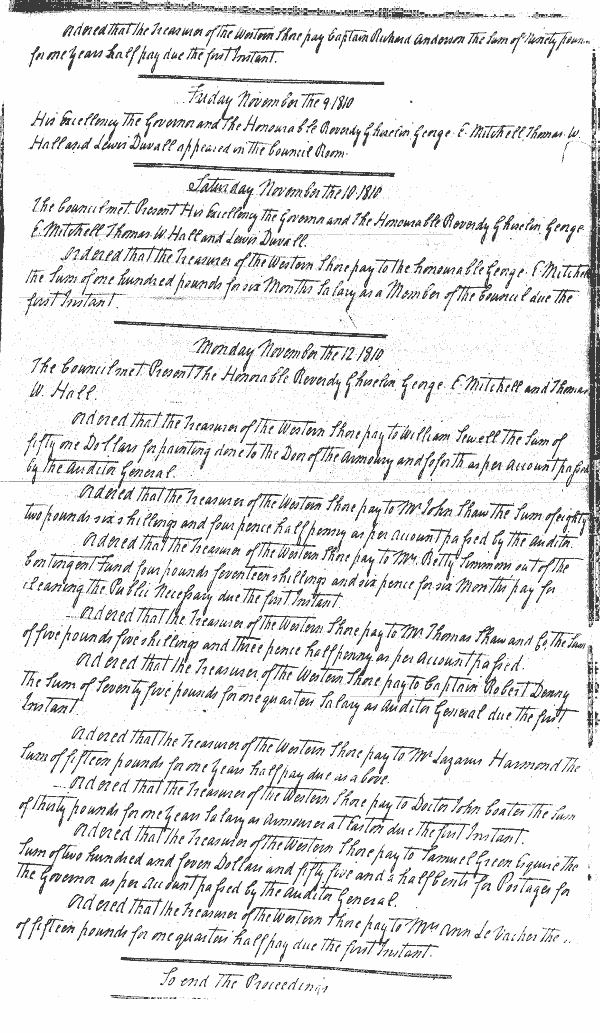 Ordered that the Treasurer of the Western Shore pay Captain Richard Anderson the Sum of Ninety poun
for one Years half pay due the first Instant.
Friday November the 9 1810
His Excellency the Governor and The Honourable Reverdy Ghiselin George E Mitchell Thomas W.
Hall and Lewis Duvall appeared in the Council Room.
Saturday November the 10 1810
The Council met Present His Excellency the Governor and The Honourable Reverdy Ghiselin George
E Mitchell Thomas W Hall and Lewis Duvall.
Ordered that the Treasurer of the Western Shore pay to the honourable George E Mitchell
the Sum of one hundred pounds for six Months Salary as a Member of the Council due the
first Instant
Monday November the 12 1810
The Council met Present The Honorable Reverdy Ghiselin George E Mitchell and Thomas
W. Hall.
Ordered that the Treasurer of the Western Shore pay to William Sewell The Sum of
fifty one Dollars for painting done to the Door of the Armoury and so forth as per Account passed
by the Auditor General.
Ordered that the Treasurer of the Western Shore pay to Mr John Shaw the Sum of eighty
two pounds six shillings and four pence half penny as per account passed by the auditor.
Ordered that the Treasurer of the Western Shore pay to Mrs Betty Simmons out of the
Contingent Fund four pounds seventeen shillings and six pence for six Months pay for
cleaning the Public Necessary due the first Instant.
Ordered that the Treasurer of the Western Shore pay to Mr Thomas Shaw and Co the Sum
of five pounds five shillings and three pence half penny as per Account passed.
Ordered that the Treasurer of the Western Shore pay to Captain Robert Denny
The Sum of Seventy five pounds for one quarters Salary as Auditor General due the first
Instant
Ordered that the Treasurer of the Western Shore pay to Mr Lazarus Harmond the
Sum of fifteen pounds for one Years half pay due as above.
Ordered that the Treasurer of the Western Shore pay to Doctor John Coates the Sum
of thirty pounds for one Years Salary as Armourer at Easton due the first Instant.
Ordered that the Treasurer of the Western Shore pay to Samuel Green Esquire the
Sum of two hundred and seven Dollars and fifty five and a half Cents for Postages for
the Governor as per Account passed by the Auditor General.
Ordered that the Treasurer of the Western Shore pay to Mrs Ann Le Vacher the
of fifteen pounds for one quarters half pay due the first Instant.
So end the Proceedings